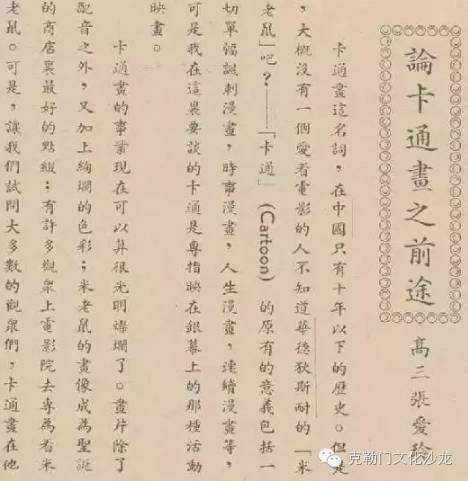 論卡通畫之前途
高三張愛玲
卡通畫這名詞，在中國只有十年以下的歷史。但是
，大概沒有一個愛看電影的人不知道華德狄斯耐的「米
老鼠」吧？——「卡通」(Cartoon)的原有的意義包括一
切單幅諷刺漫畫，時事漫畫，人生漫畫，連續漫畫等，
可是我在這裏要談的卡通是專指映在銀幕上的那種活動
映畫。
卡通畫的事業現在可以算很光明燦爛了。畫片除了
配音之外，又加上絢爛的色彩；米老鼠的畫像成為聖誕
的商店裏最好的點綴；有許多觀眾上電影院去專為看米
老鼠。可是，讓我們試問大多數的觀眾們，卡通畫在他
克勒门文化沙龙